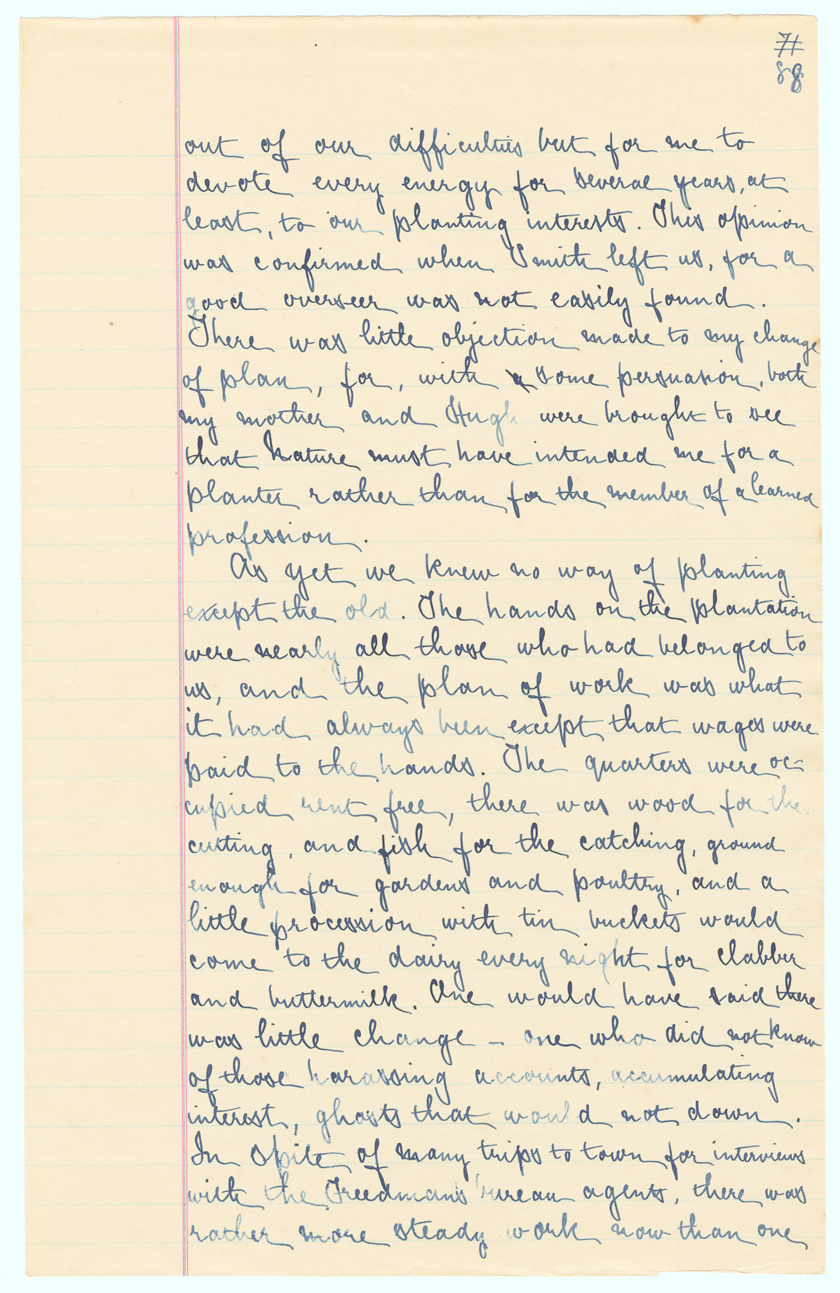 71
88
out of our difficulties but for me to
devote every energy for several years, at
least, to our planting interests. This opinion
was confirmed when Smith left us, for a
good overseer was not easily found.
There was little objection made to my change
of plan, for, with a some persuasion, both
my mother and Hugh were brought to see
that Nature must have intended me for a
planter rather than for the member of a learned
profession.
As yet we knew no way of planting
except the old. The hands on the plantation
were nearly all those who had belonged to
us, and the plan of work was what
it had always been except that wages were
paid to the hands. The quarters were oc-
cupied rent free, there was wood for the
cutting, and fish for the catching, ground
enough for gardens and poultry, and a
little procession with tin buckets would
come to the dairy every night for clabber
and buttermilk. One would have said there
was little change - one who did not know
of those harassing accounts, accumulating
interest, ghosts that would not down.
In spite of many trips to town for interviews
with the Freedman's bureau agents, there was
rather more steady work now than one